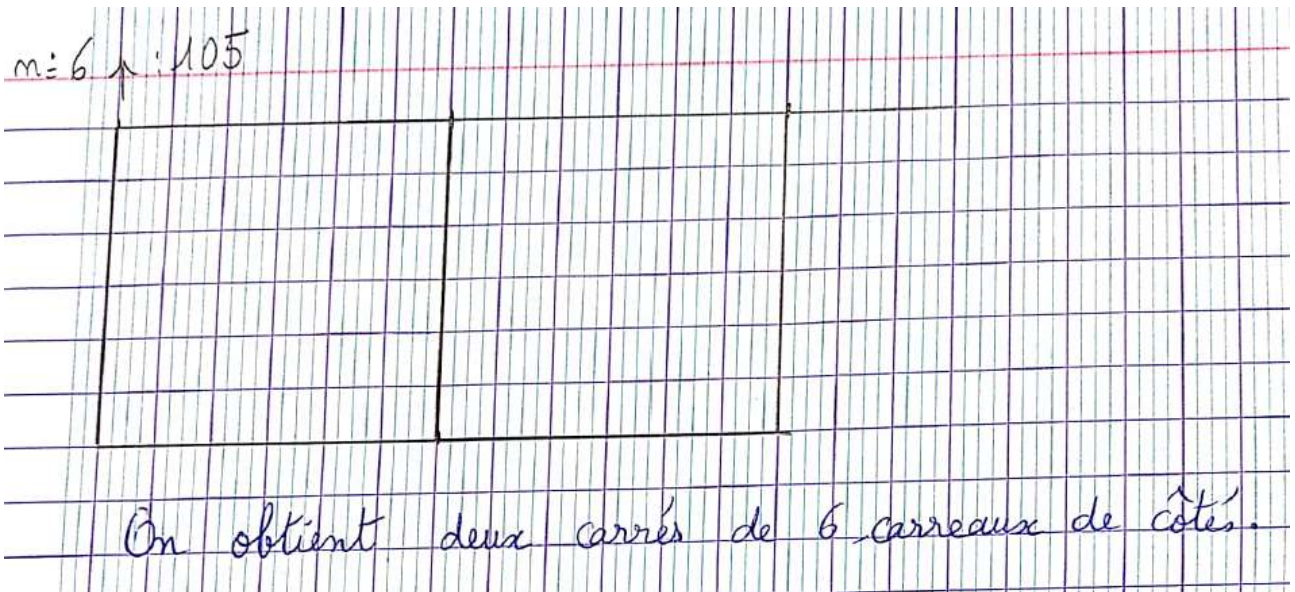 n: 6 ↑ : 105
On obtient deux carrés de 6 carreaux de côtés.